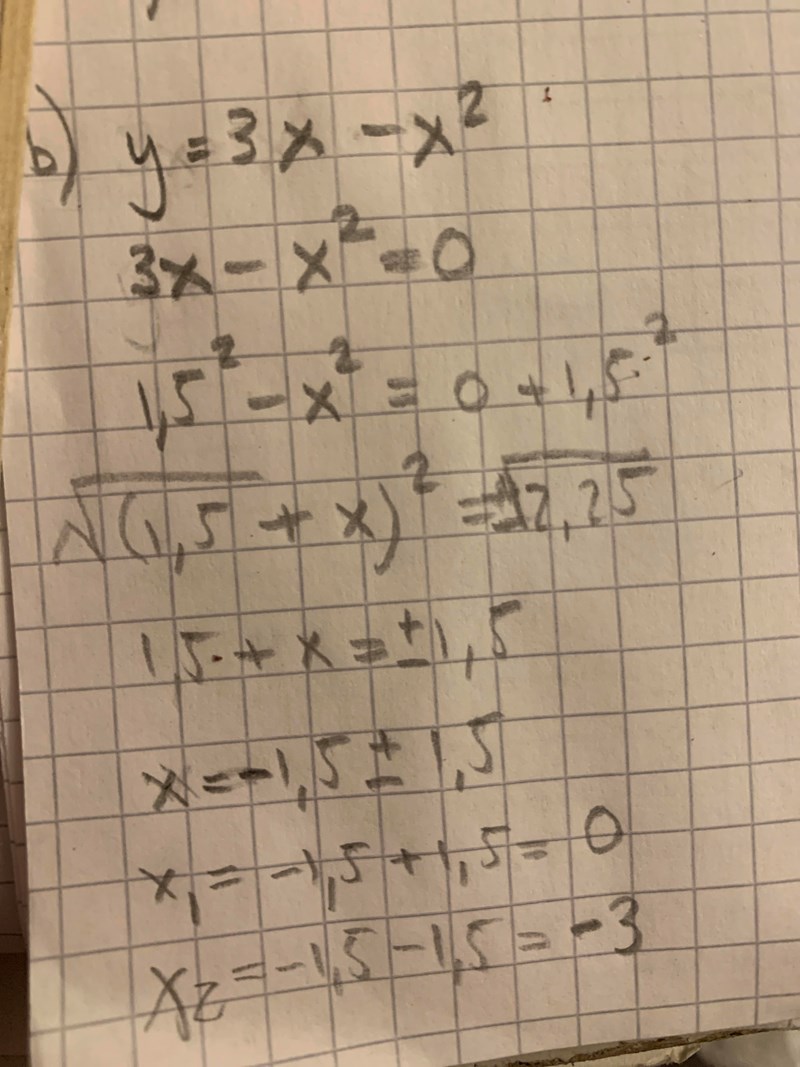 b) y = 3x - x²
3x - x² = 0
1,5² - x² = 0 + 1,5²
√(1,5 + x)² = ±√2,25
1,5 + x = ± 1,5
x = -1,5 ± 1,5
x₁ = -1,5 + 1,5 = 0
x₂ = -1,5 - 1,5 = -3